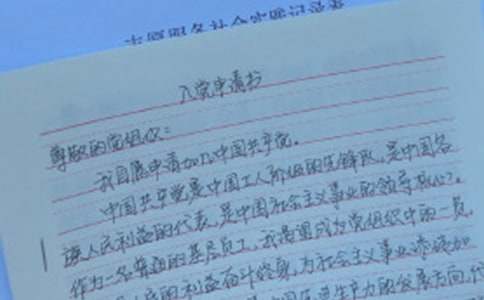 志愿服务社会实践记录表
入党申请书
尊敬的党组织：
我自愿申请加入中国共产党。
中国共产党是中国工人阶级的先锋队，是中国各
族人民利益的代表，是中国社会主义事业的领导核心。
作为一名普通的基层员工，我渴望成为党组织中的一员，
的利益奋斗终身，为社会主义事业添砖加
生产力的发展方向，代